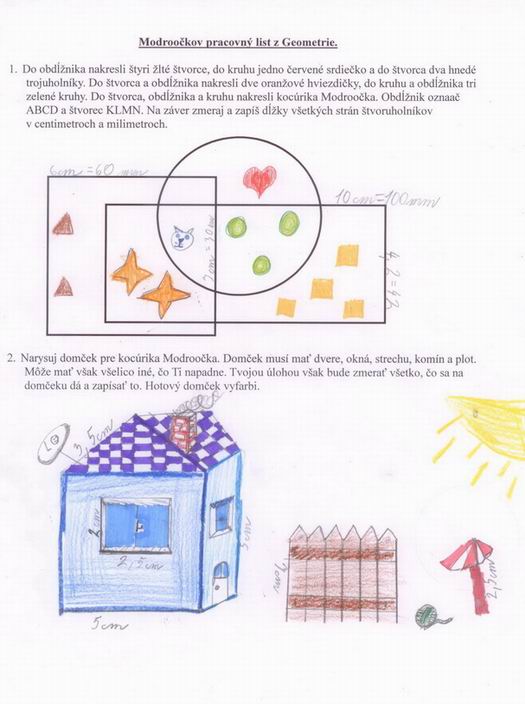 Modroočkov pracovný list z Geometrie.
1. Do obdĺžnika nakresli štyri žlté štvorce, do kruhu jedno červené srdiečko a do štvorca dva hnedé
trojuholníky. Do štvorca a obdĺžnika nakresli dve oranžové hviezdičky, do kruhu a obdĺžnika tri
zelené kruhy. Do štvorca, obdĺžnika a kruhu nakresli kocúrika Modroočka. Obdĺžnik oznaač
ABCD a štvorec KLMN. Na záver zmeraj a zapíš dĺžky všetkých strán štvoruholníkov
v centimetroch a milimetroch.
6cm = 60 mm
10 cm = 100mm
4,2 = 42
2. Narysuj domček pre kocúrika Modroočka. Domček musí mať dvere, okná, strechu, komín a plot.
Môže mať však všelico iné, čo Ti napadne. Tvojou úlohou však bude zmerať všetko, čo sa na
domčeku dá a zapísať to. Hotový domček vyfarbi.
3,5cm
2cm
2,5cm
5cm
5cm
2,5cm